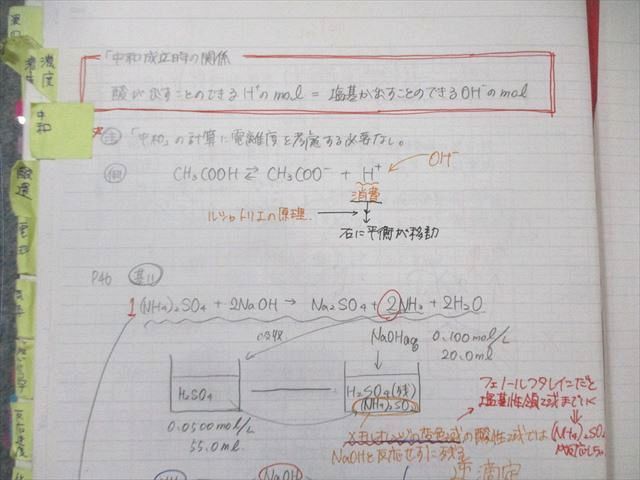 「中和」成立時の関係
酸が出すことのできるH⁺のmol = 塩基が出すことのできるOH⁻のmol
濃度
中和
注 「中和」の計算に電離度を考慮する必要なし。
例 CH₃COOH ⇄ CH₃COO⁻ + H⁺ OH⁻
消費
ルシャトリエの原理
右に平衡が移動
P46 基11
1(NH₄)₂SO₄ + 2NaOH → Na₂SO₄ + 2NH₃ + 2H₂O
吸収
NaOHaq 0.100mol/L
20.0ml
H₂SO₄
H₂SO₄(残)
(NH₄)₂SO₄
0.0500mol/L
55.0ml
フェノールフタレインだと
塩基性領域までいく
(NH₄)₂SO₄
メチルオレンジの変色域の酸性域では
NaOHと反応せずに残る
逆滴定
NaOH